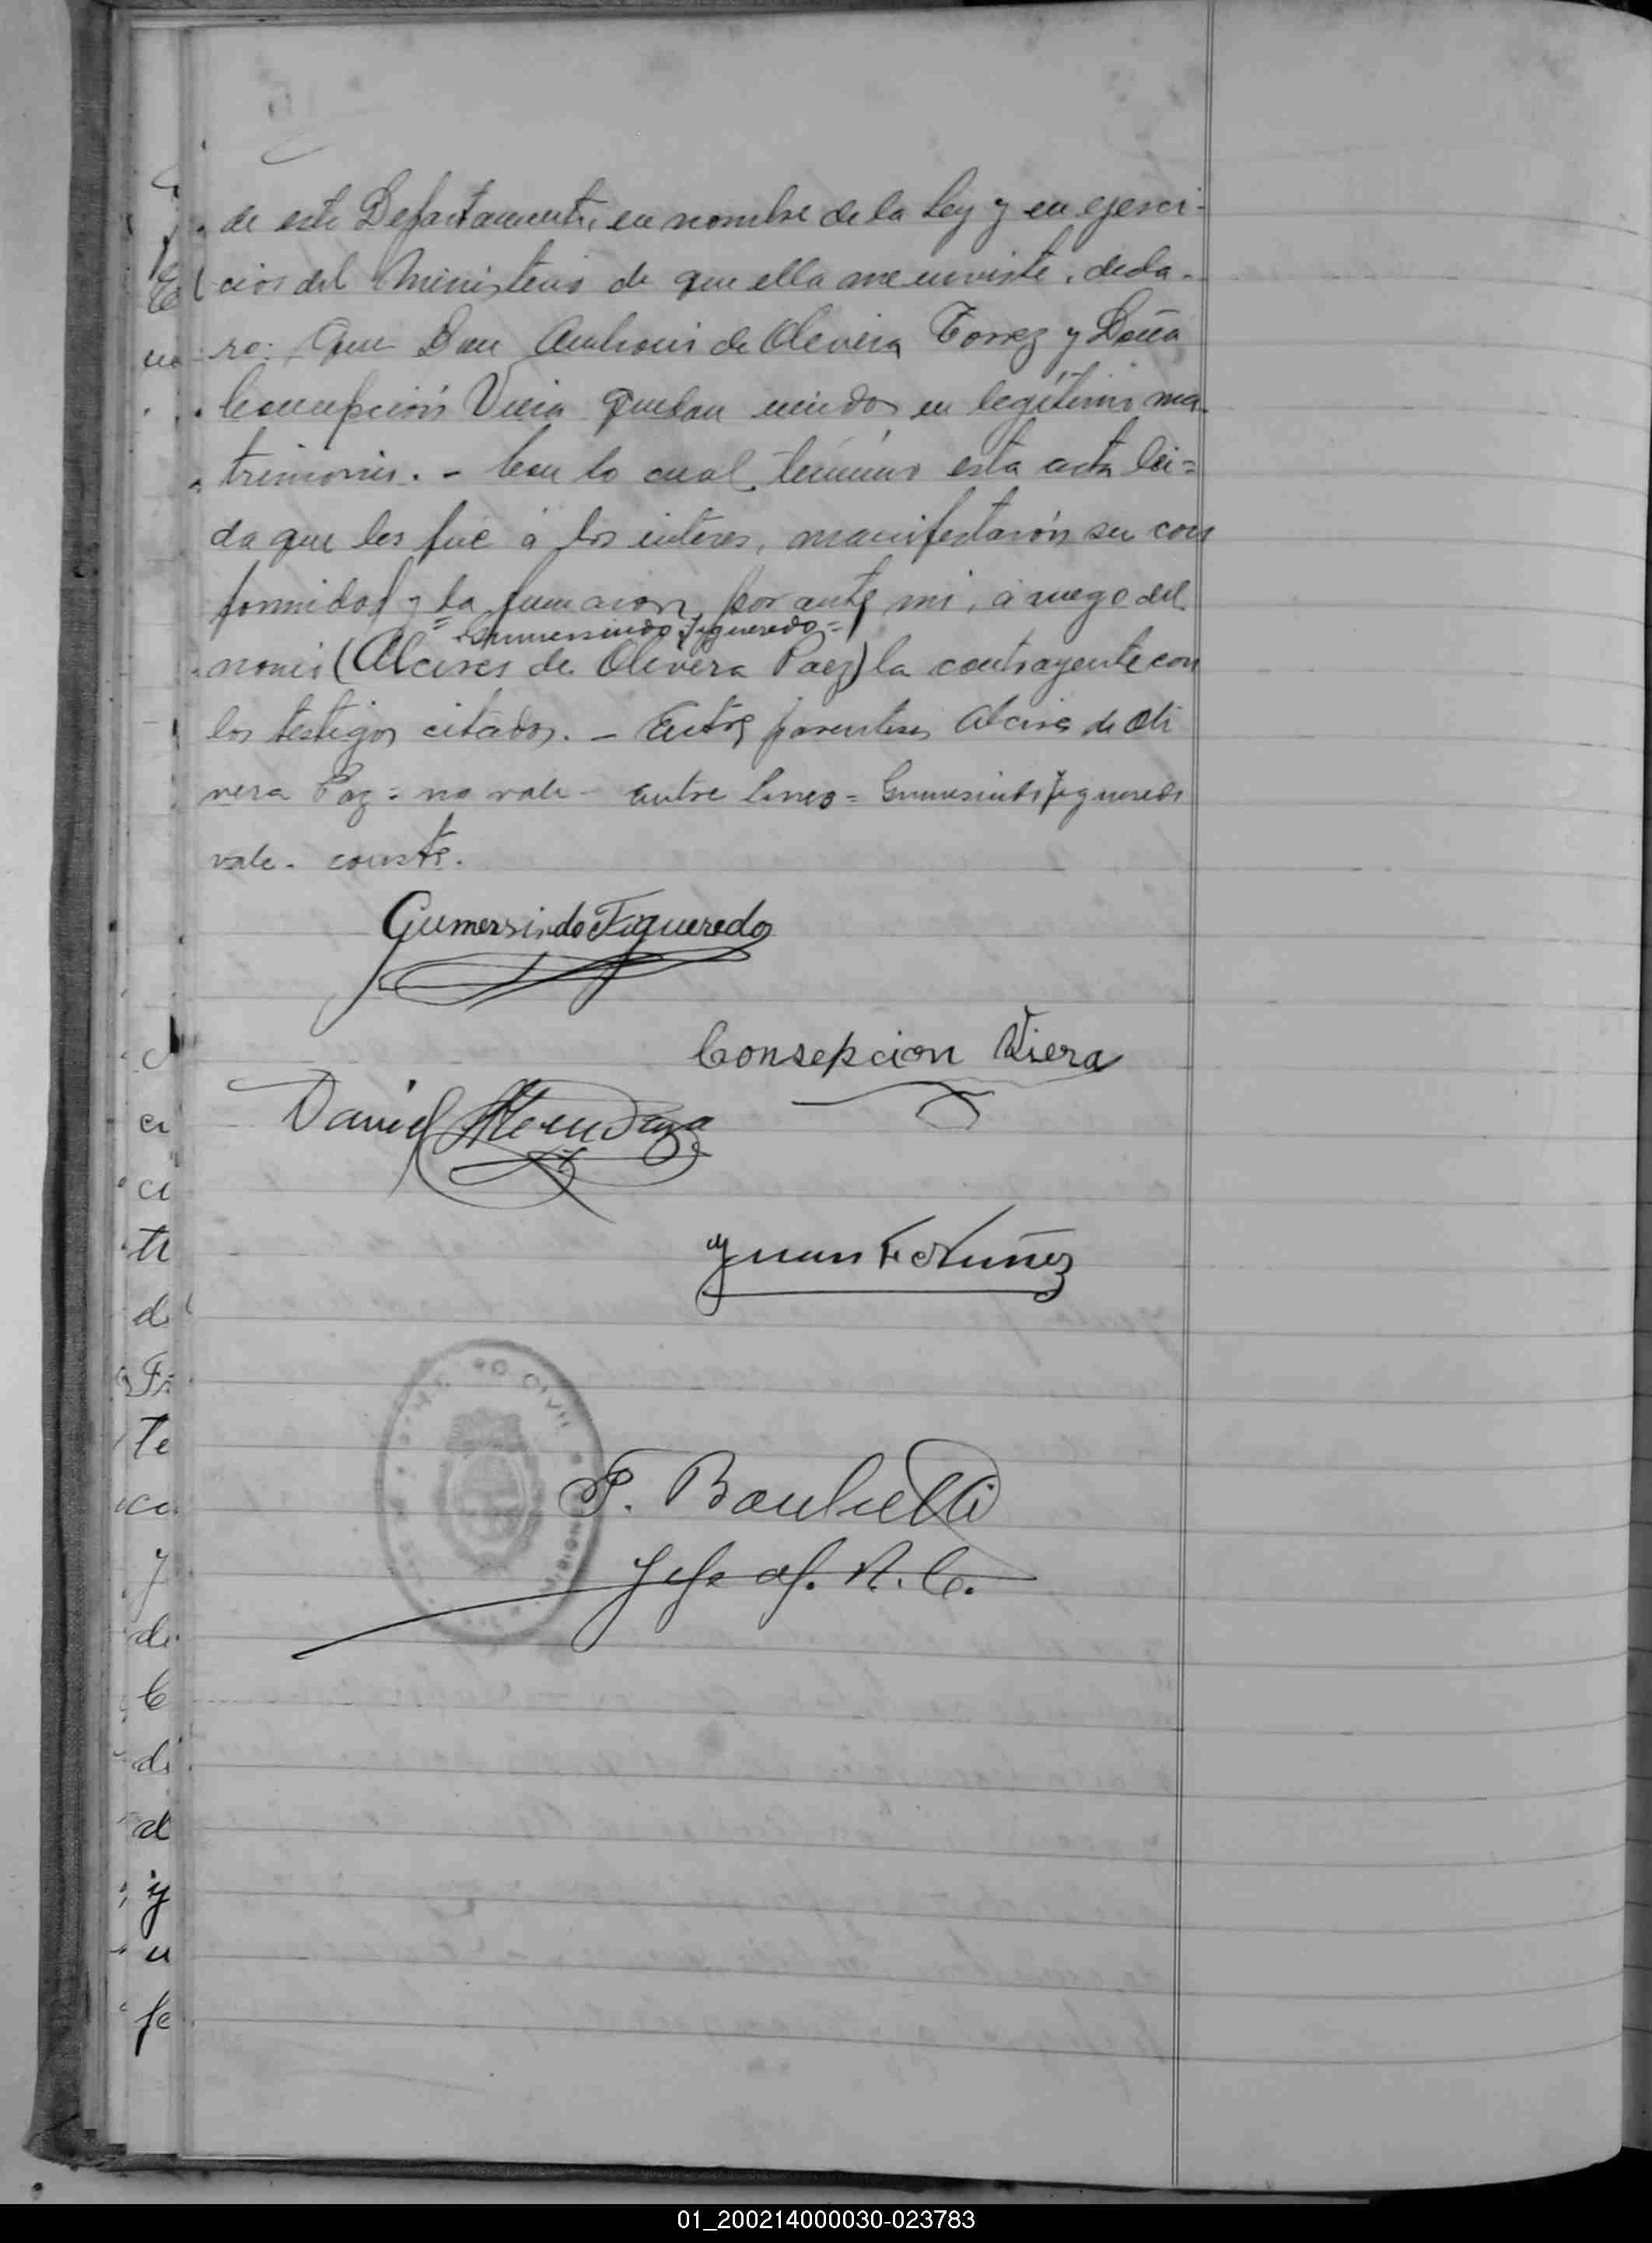 de este Departamento, en nombre de la Ley y en ejerci-
cios del Ministerio de que ella me enviste, decla-
ro: Que Don Antonio de Olivera Torrez y Doña
Concepción Viera quedan unidos en legítimo ma-
trimonio. - Con lo cual, término esta acta lei=
da que les fue á los interes, manifestarón su con
formidad y la firmaron, por ante mi, á ruego del
=Gumersindo Figueredo=
novio (Alcires de Olivera Paez) la contrayente con
los testigos citados. - Entre parentesis Alcires de Oli
vera Paz = no vale - entre lineas = Gumersindo Figueredo
vale. conste.
Gumersindo Figueredo
Consepcion Viera
Daniel Mendoza
Juan F Nuñez
Jefe of. R. C.
01_200214000030-023783